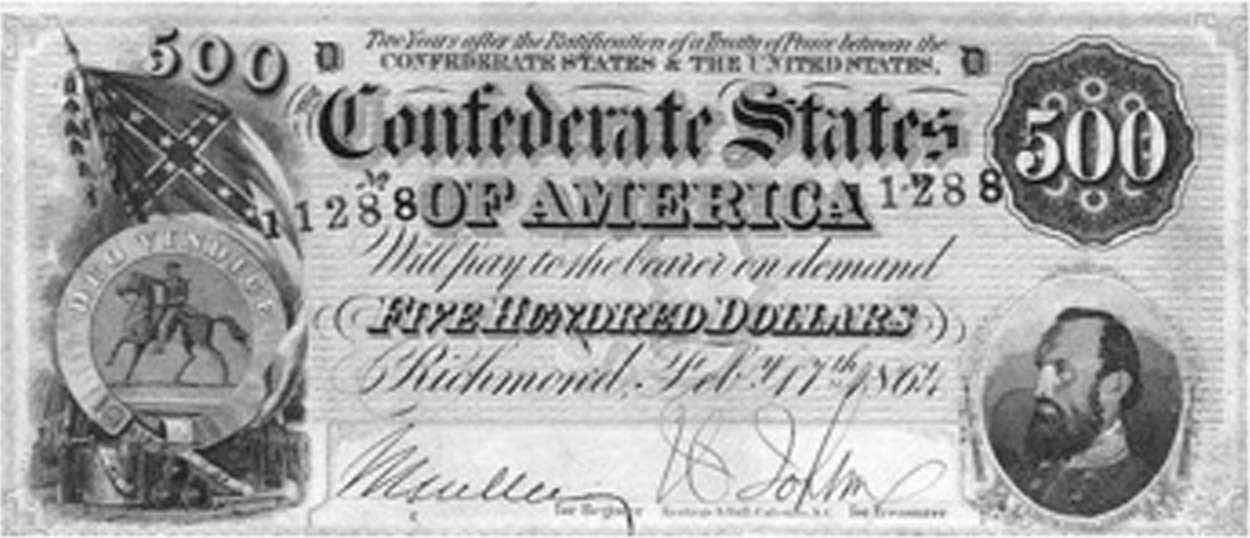 500 D Two Years after the Ratification of a Treaty of Peace between the D
CONFEDERATE STATES & THE UNITED STATES.
The Confederate States
500
No 11288 OF AMERICA 11288
Will pay to the bearer on demand
FIVE HUNDRED DOLLARS
Richmond, Feby 17th 1864
DEO VINDICE
for Register
for Treasurer